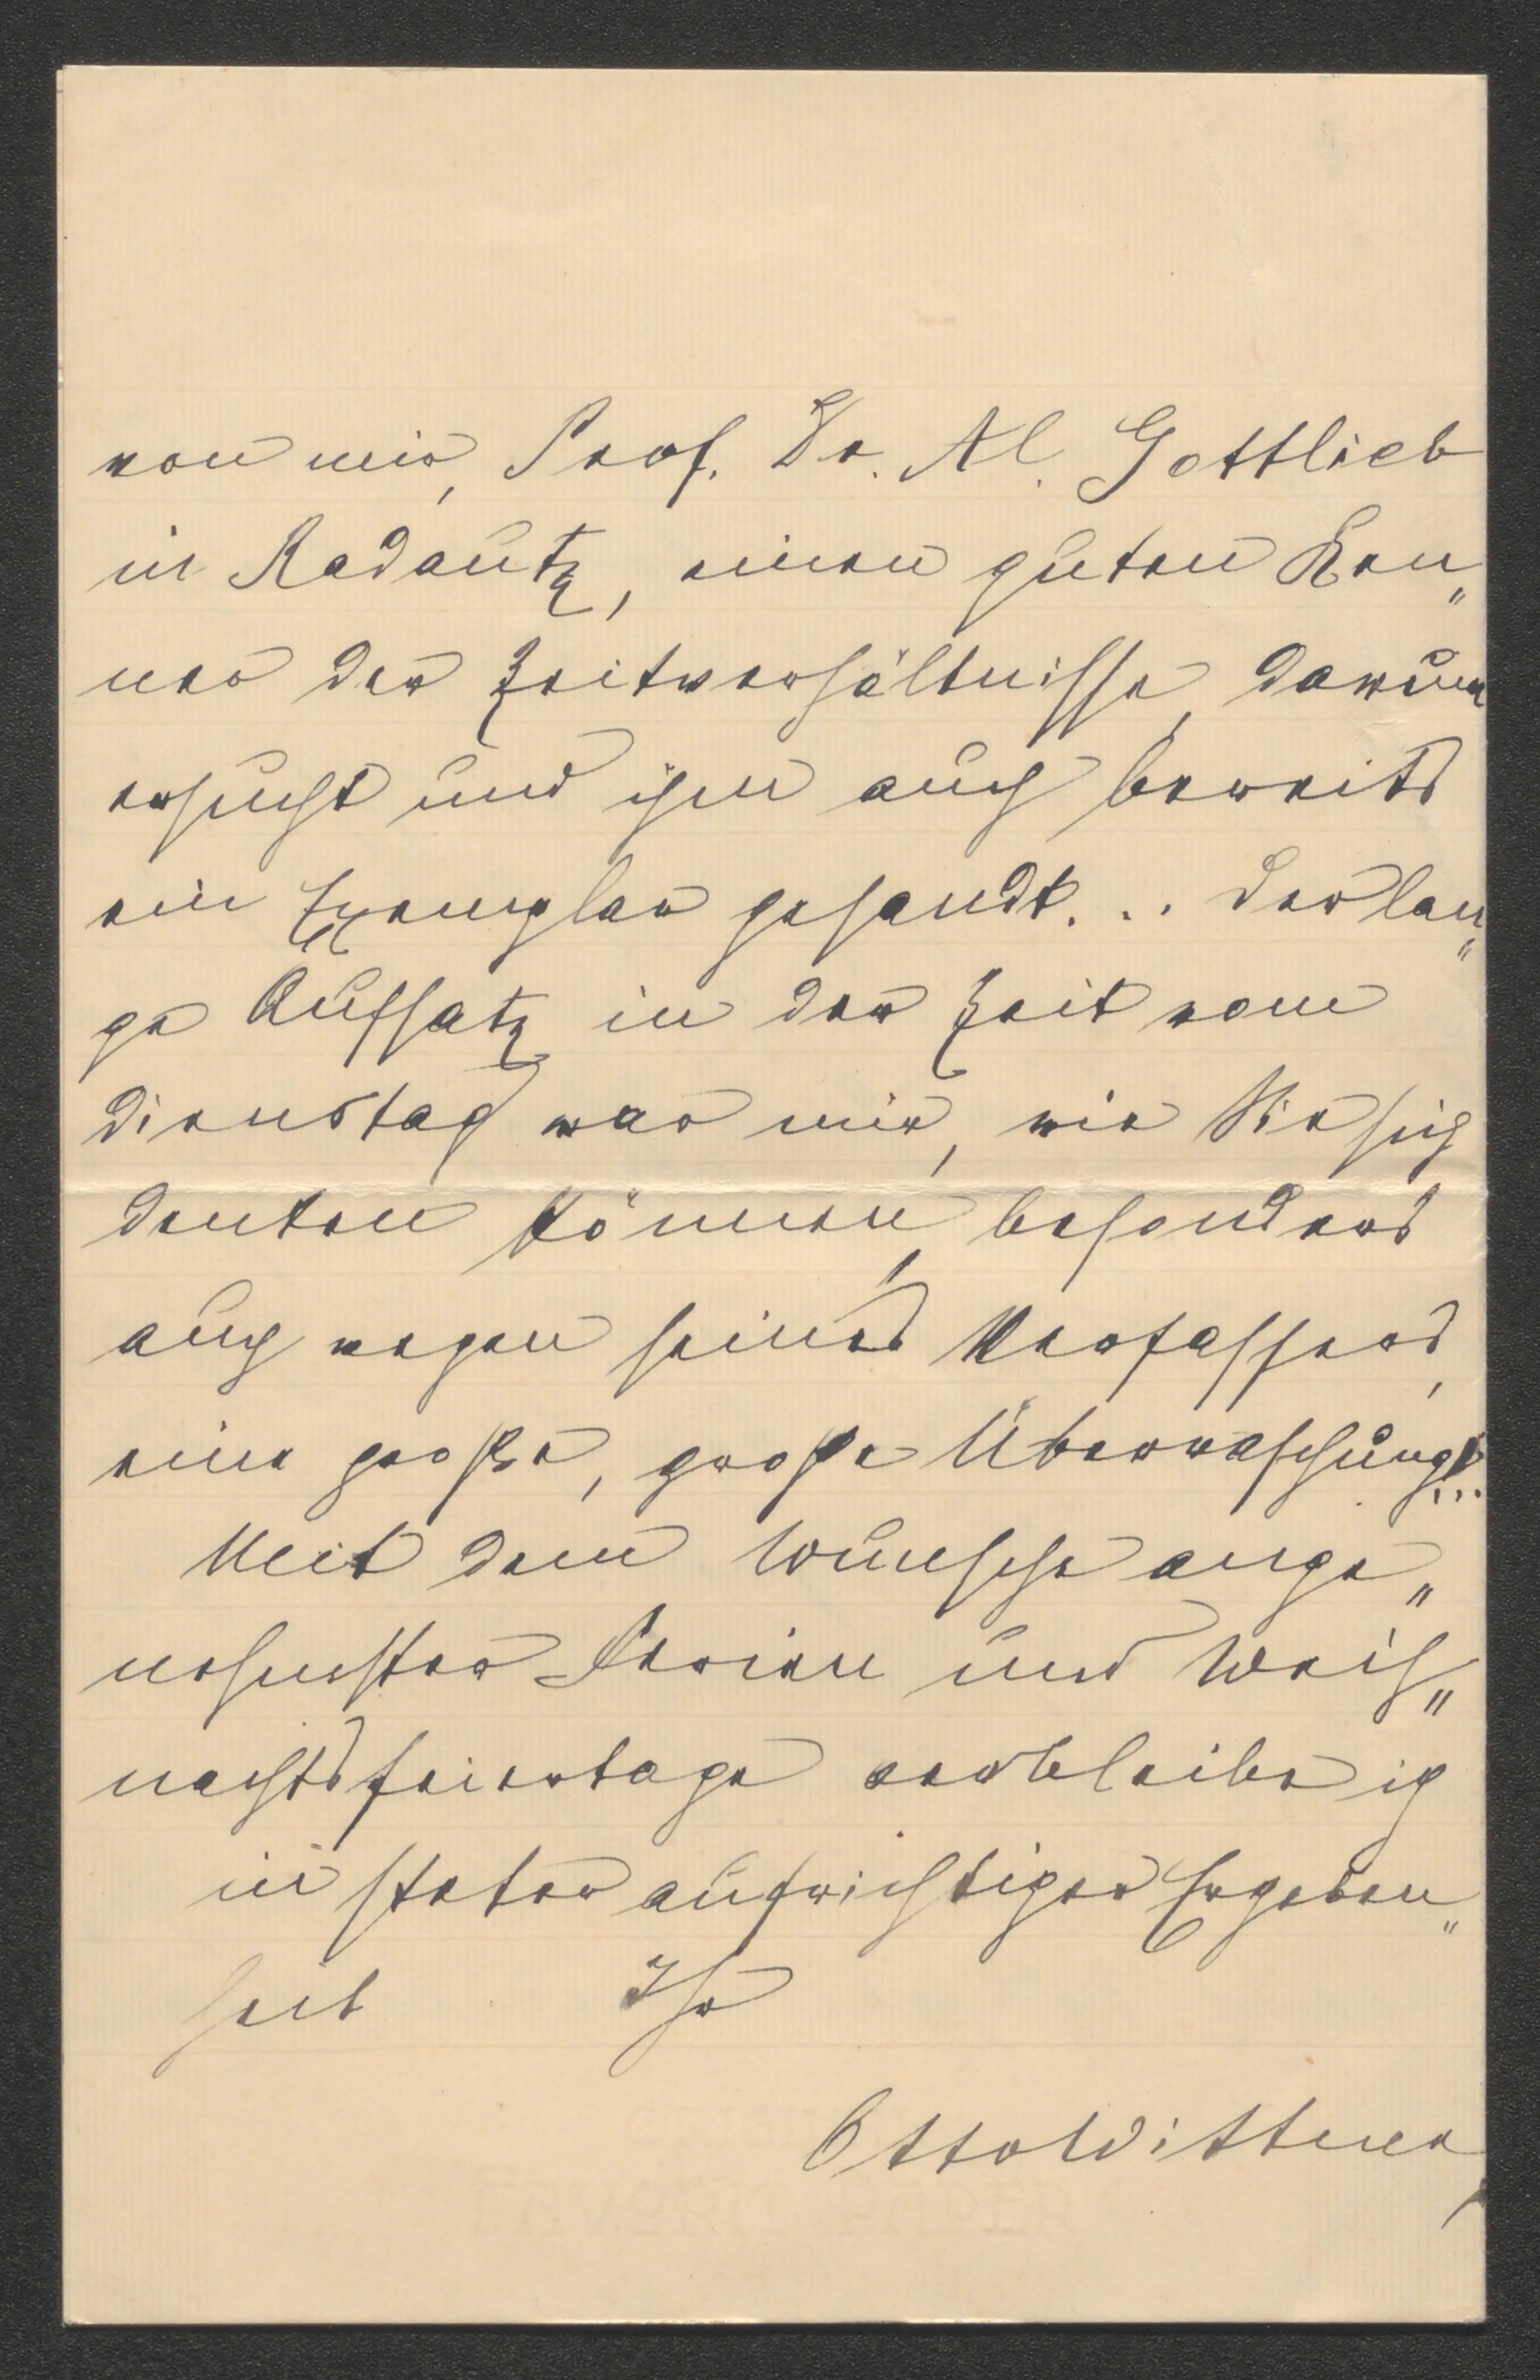 von mir, Prof. Dr. Al. Gottlieb
in Radautz, einen guten Ken„
ner der Zeitverhältnisse, darum
ersucht und ihm auch bereits
ein Exemplar gesandt... Der lan„
ge Aufsatz in der Zeit vom
Dienstag war mir, wie Sie sich
denken können, besonders
auch wegen seines Verfassers,
eine große, große Überraschung!...
Mit dem Wunsche ange„
nehmster Ferien und Weih„
nachtsfeiertage verbleibe ich
in steter aufrichtiger Ergeben„
heit Ihr
Otto Wittner